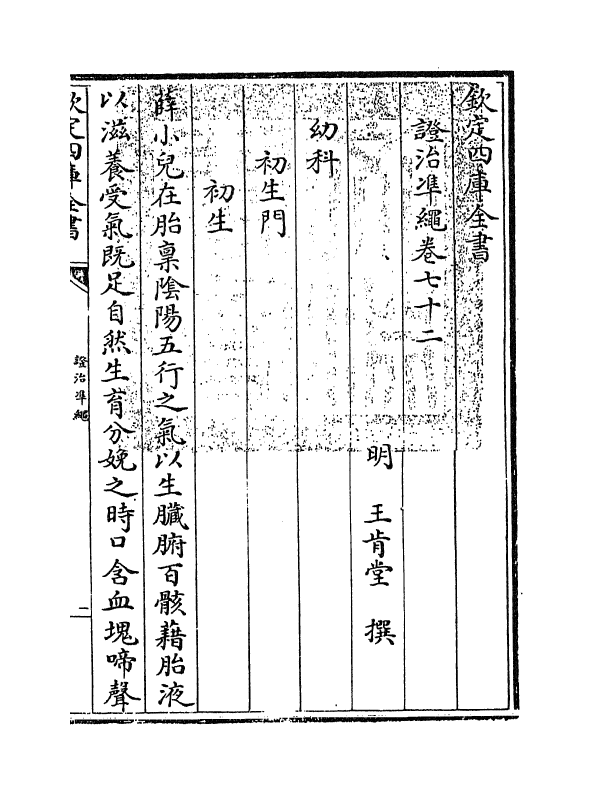 欽定四庫全書
證治凖繩卷七十二
明　王肯堂　撰
幼科
初生門
初生
薛小兒在胎稟陰陽五行之氣以生臟腑百骸藉胎液
以滋養受氣既足自然生育分娩之時口含血塊啼聲
欽定四庫全書
證治凖繩
二